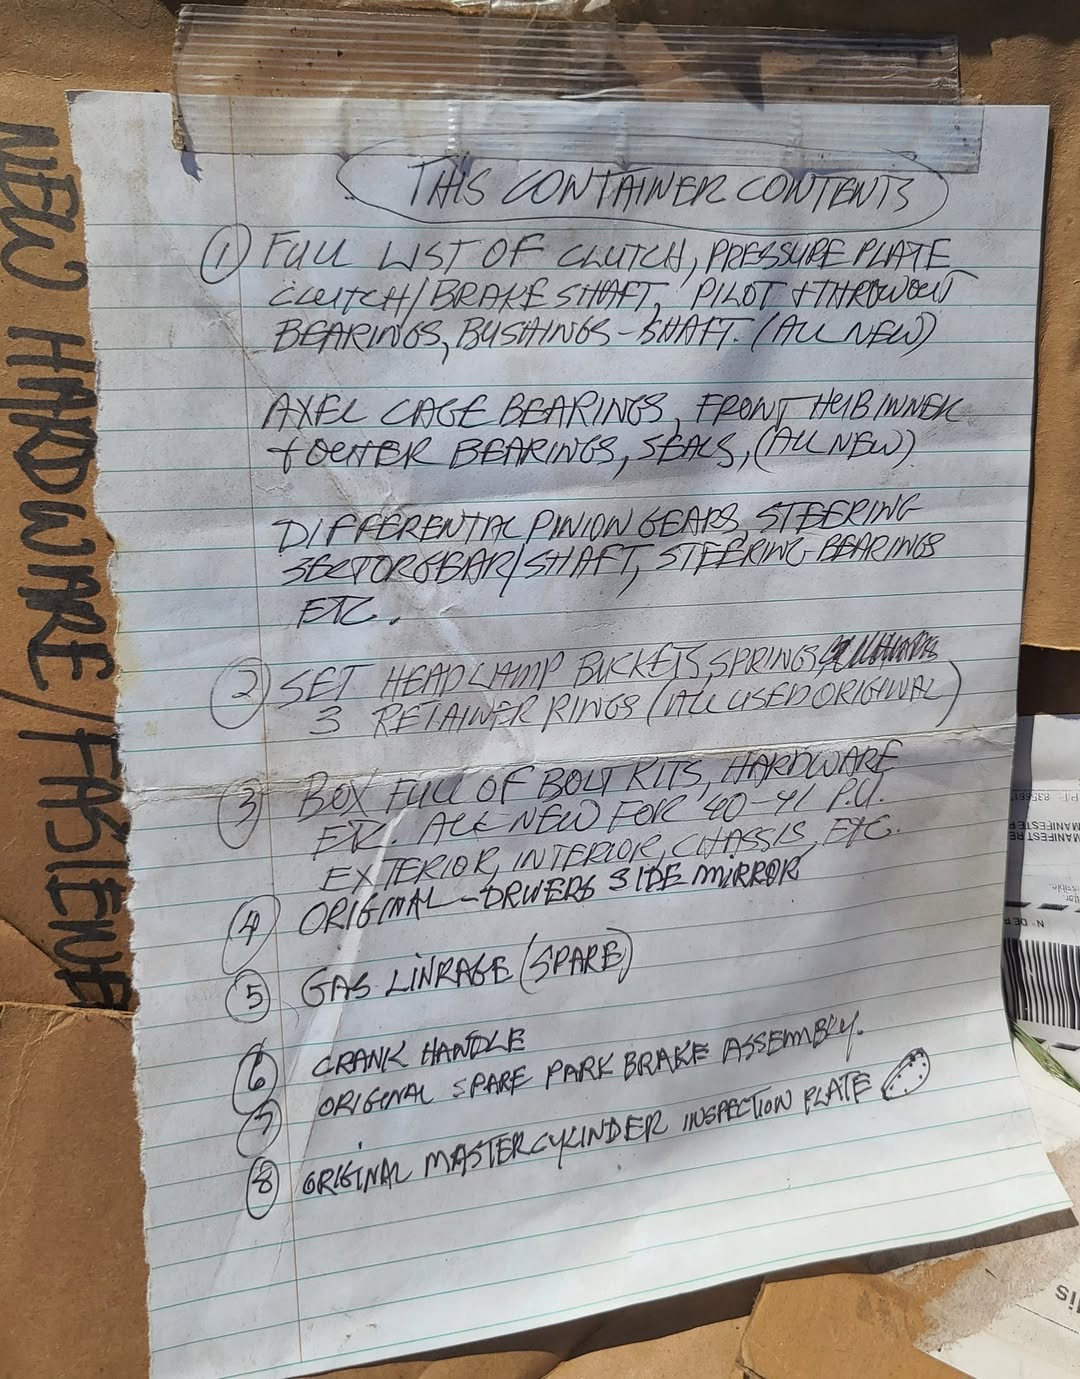 THIS CONTAINER CONTENTS
① FULL LIST OF CLUTCH, PRESSURE PLATE
CLUTCH/BRAKE SHAFT, PILOT + THROWOUT
BEARINGS, BUSHINGS - SHAFT. (ALL NEW)
AXEL CAGE BEARINGS, FRONT HUB INNER
+ OUTER BEARINGS, SEALS, (ALL NEW)
DIFFERENTAL PINION GEARS, STEERING
SECTOR GEAR/SHAFT, STEERING BEARINGS
ETC.
② SET HEADLAMP BUCKETS, SPRINGS
3 RETAINER RINGS (ALL USED ORIGINAL)
③ BOX FULL OF BOLT KITS, HARDWARE
ETC. ALL NEW FOR '40-41 P.U.
EXTERIOR, INTERIOR, CHASSIS, ETC.
④ ORIGINAL - DRIVERS SIDE MIRROR
⑤ GAS LINKAGE (SPARE)
⑥ CRANK HANDLE
⑦ ORIGINAL SPARE PARK BRAKE ASSEMBLY.
⑧ ORIGINAL MASTER CYLINDER INSPECTION PLATE
NEW HARDWARE/FASTENER
N° DE